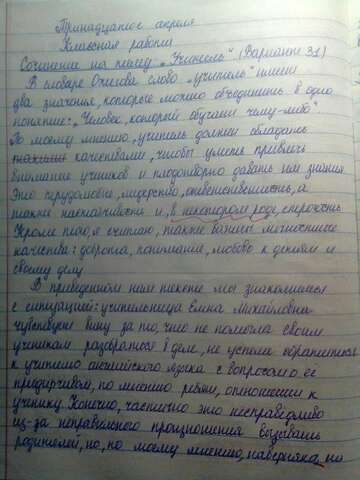 Тринадцатое апреля
Классная работа
Сочинение на тему „Учитель" (Вариант 31)
В словаре Ожегова слово „учитель" имеет
два значения, которые можно объединить в одно
понятие: „Человек, который обучает чему-либо"
По моему мнению, учитель должен обладать
качествами, чтобы уметь привлечь
внимание учеников и плодотворно давать им знания.
Это трудолюбие, лидерство, ответственность, а
также настойчивость и, в некотором роде, строгость
Кроме того, я считаю, также важны личностные
качества: доброта, понимание, любовь к детям и
своему делу
В приведённом нам тексте мы знакомимся
с ситуацией: учительница Елена Михайловна
чувствует вину за то, что не помогла своим
ученикам разобраться в деле, не успела обратиться
к учителю английского языка с вопросом о её
придирчивом, по мнению ребят, отношении к
ученику. Конечно, частично это несправедливо
из-за неправильного произношения вызывать
родителей, но, по моему мнению, наверняка, но